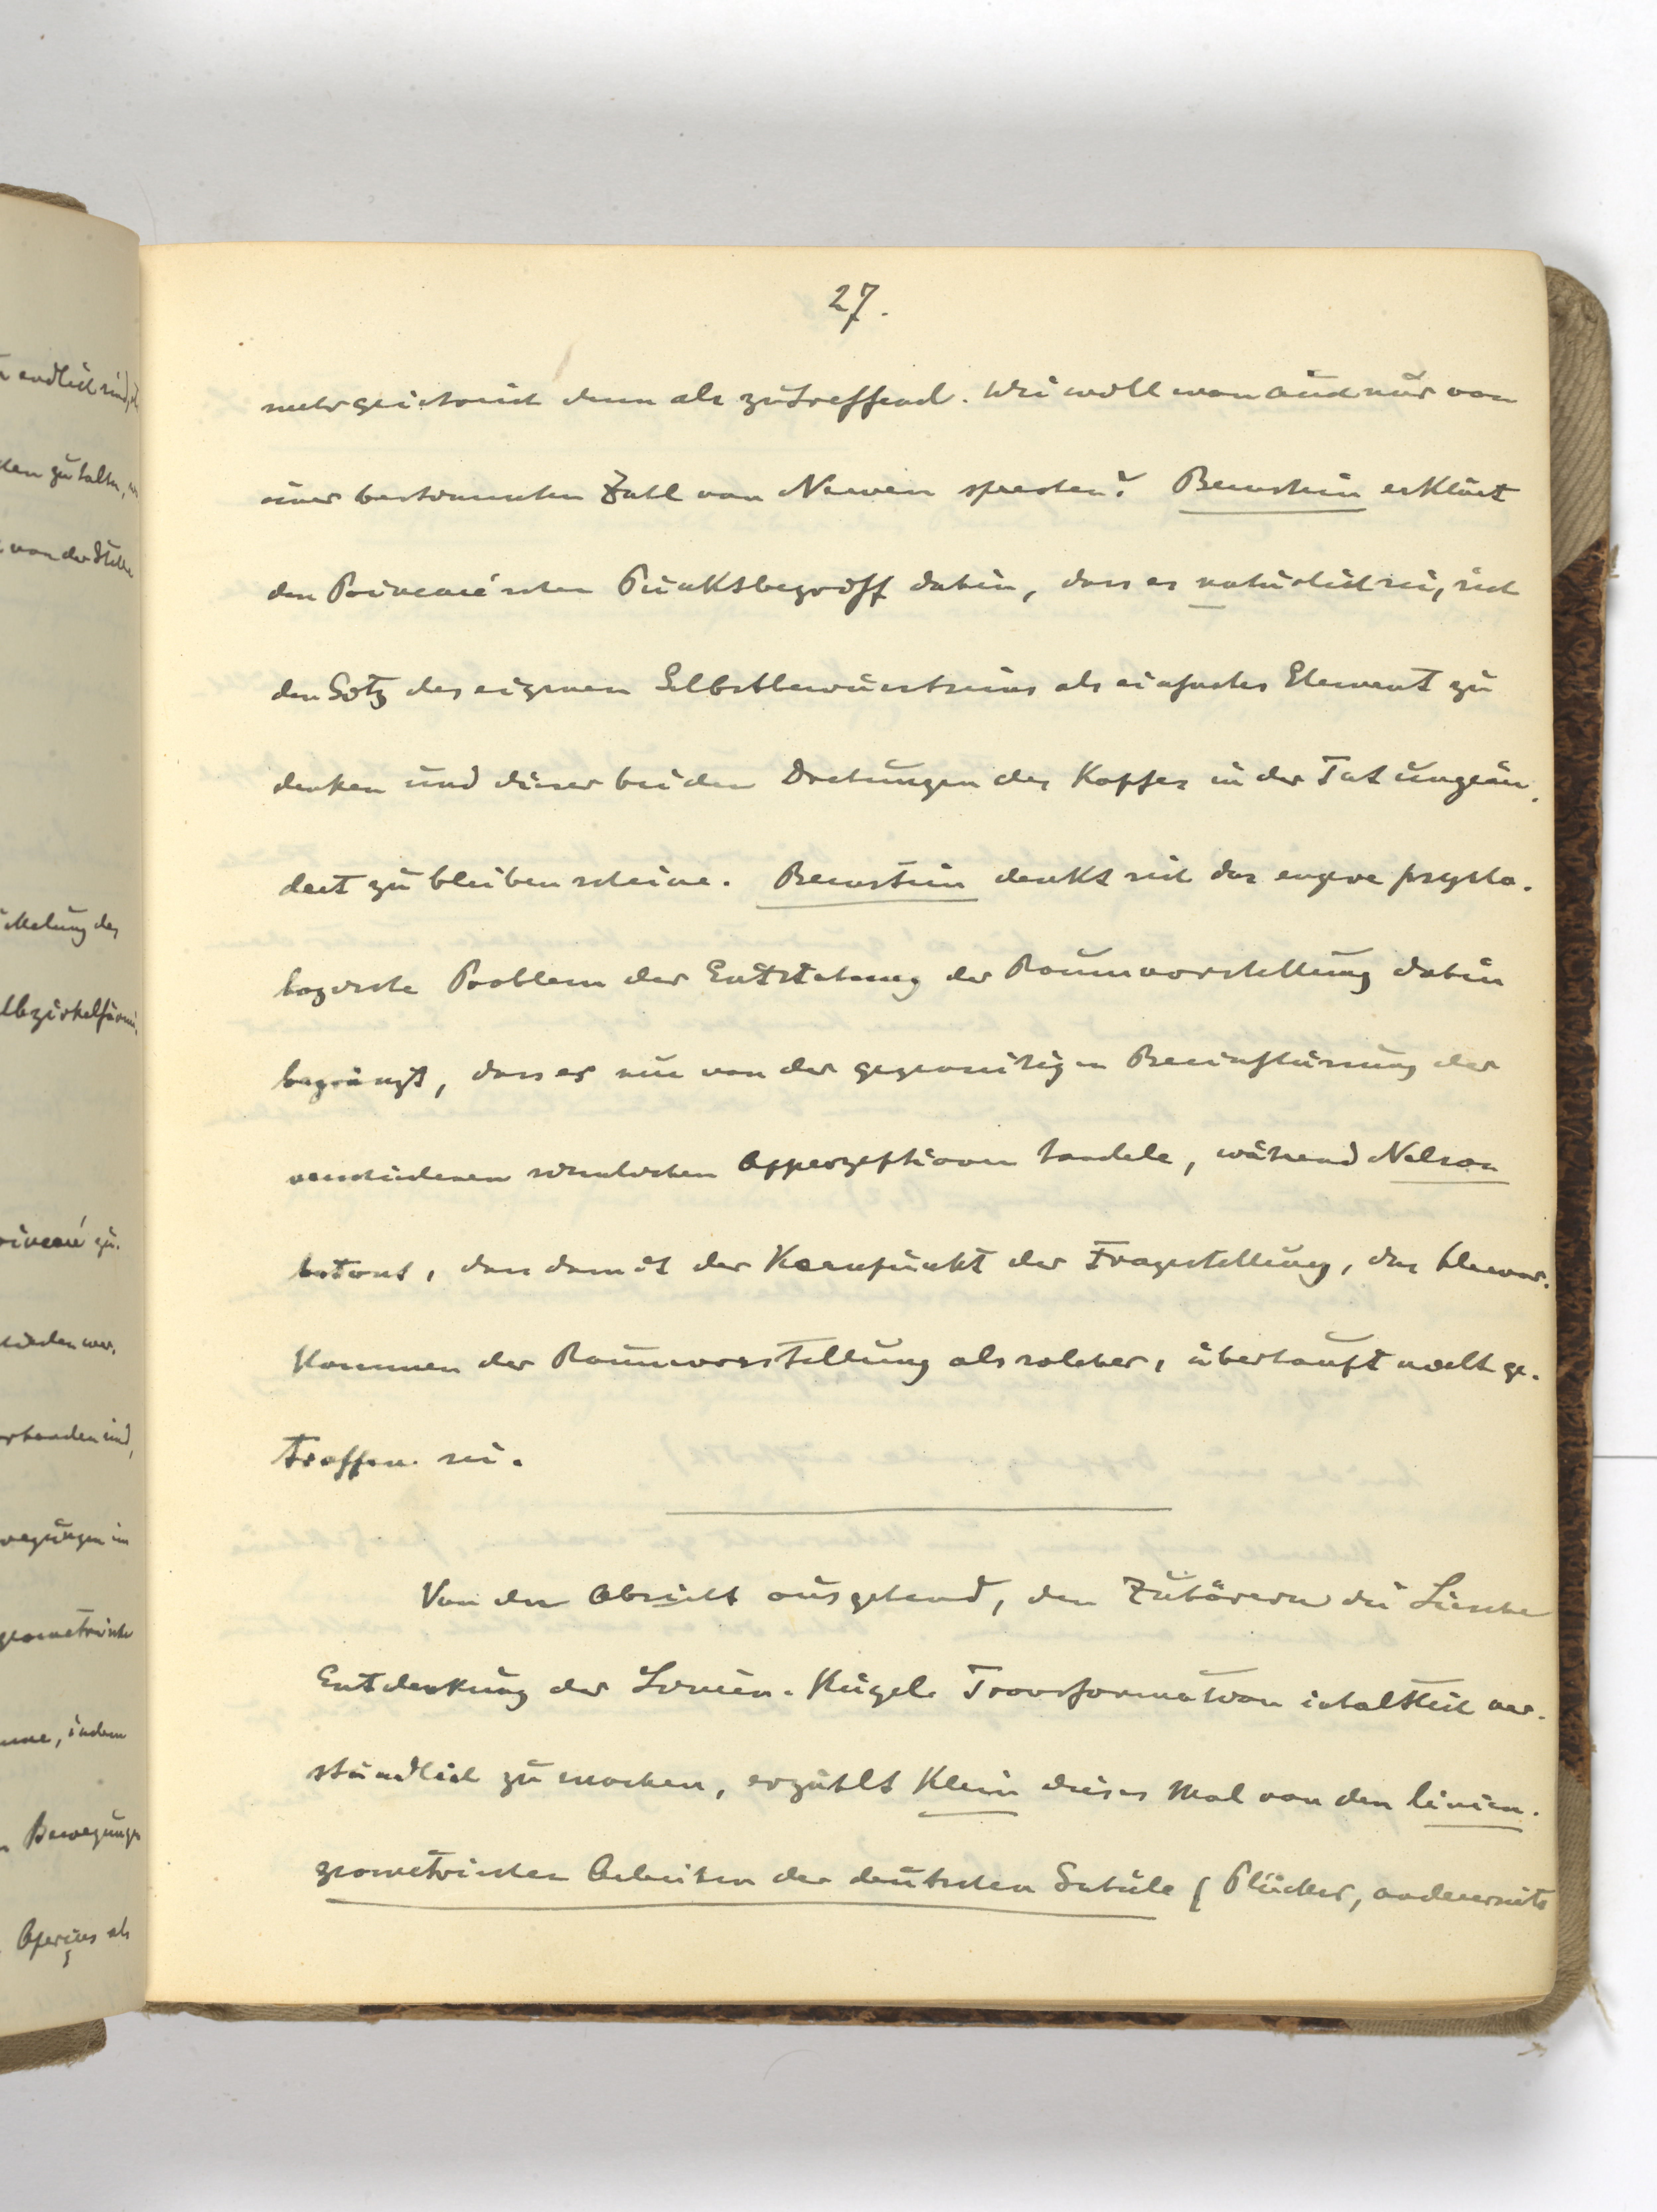 27.
mehr geistreich denn als zutreffend. Wie wolle man auch nur von
einer bestimmten Zahl von Nerven sprechen? Bernstein erklärt
den Poincaré'schen Punktsbegriff dahin, dass es natürlich sei, sich
den Sitz des eigenen Selbstbewusstseins als einfaches Element zu
denken und dieser bei den Drehungen des Kopfes in der Tat ungeän-
dert zu bleiben scheine. Bernstein denkt sich das engere psycho-
logische Problem der Entstehung der Raumvorstellung dahin
begränzt, dass es sich von der gegenseitigen Beeinflussung der
verschiedenen sinnlichen Apperzeptionen handele, während Nelson
betont, dass damit der Kernpunkt der Fragestellung, das
kommen der Raumvorstellung als solcher, überhaupt nicht ge-
troffen sei.
Von der Absicht ausgehend, den Zuhörern die Liesche
Entdeckung der Linien-Kugel-Transformation inhaltlich ver-
ständlich zu machen, erzählt Klein dieses Mal von den linien-
geometrischen Arbeiten der deutschen Schule (Plücker, andererseits
endlich sind,
zu halten,
von der Stelle
des
Poincaré zu-
wer-
vorhanden sind,
Bewegungen im
geometrische
indem
Bewegungen
Aperçus als